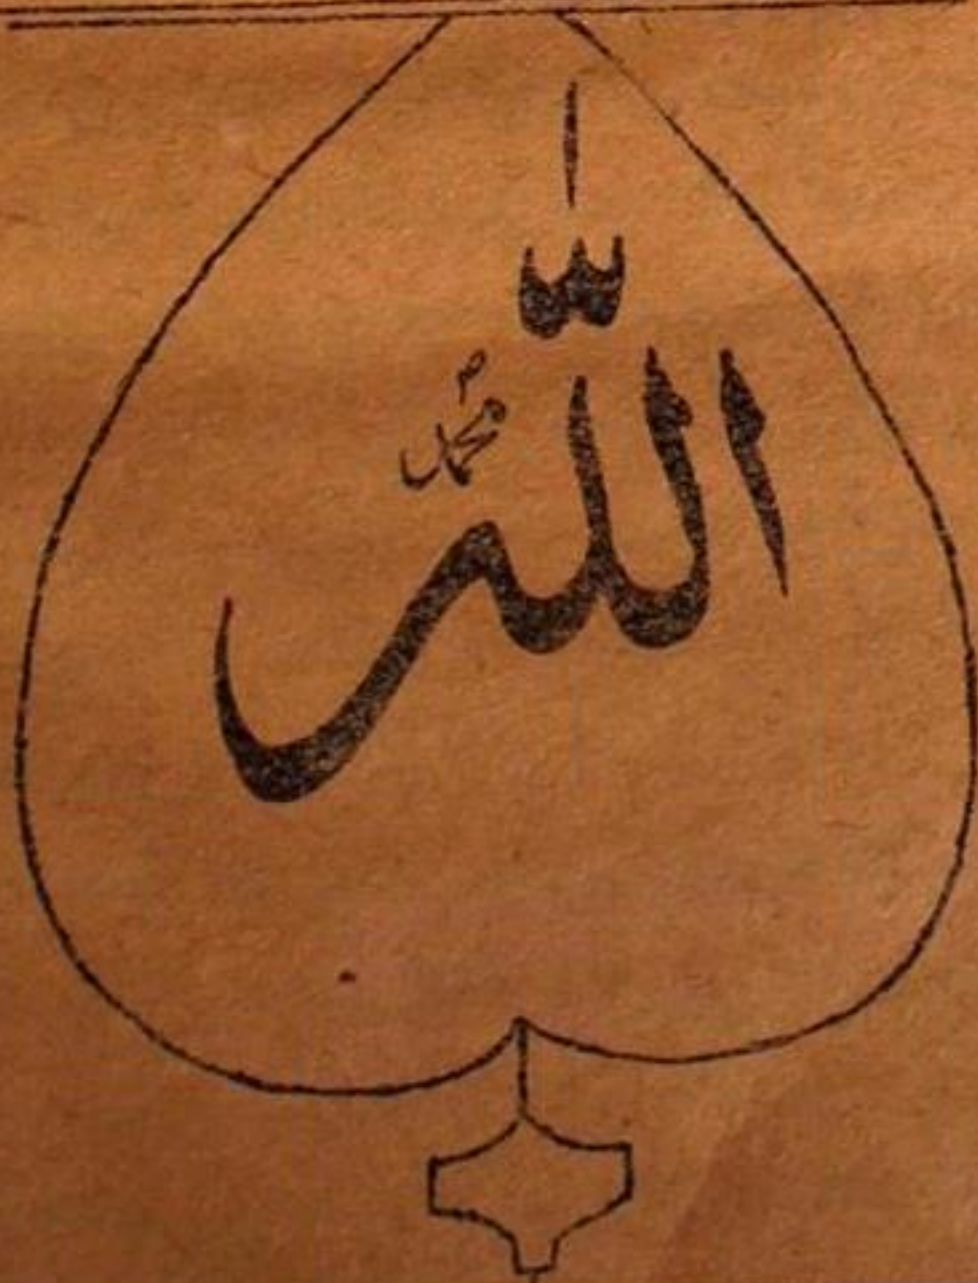 اللّٰه
محمدؐ